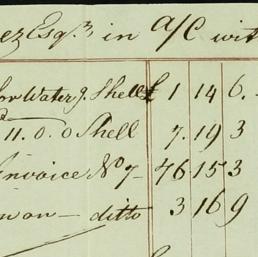 ez Esqr. in a/c wit
Water g. Shell £ 1 14 6.
11. 0. 0 Shell 7. 19 3
Invoice No 7 - 76 15 3
on - ditto 3 16 9